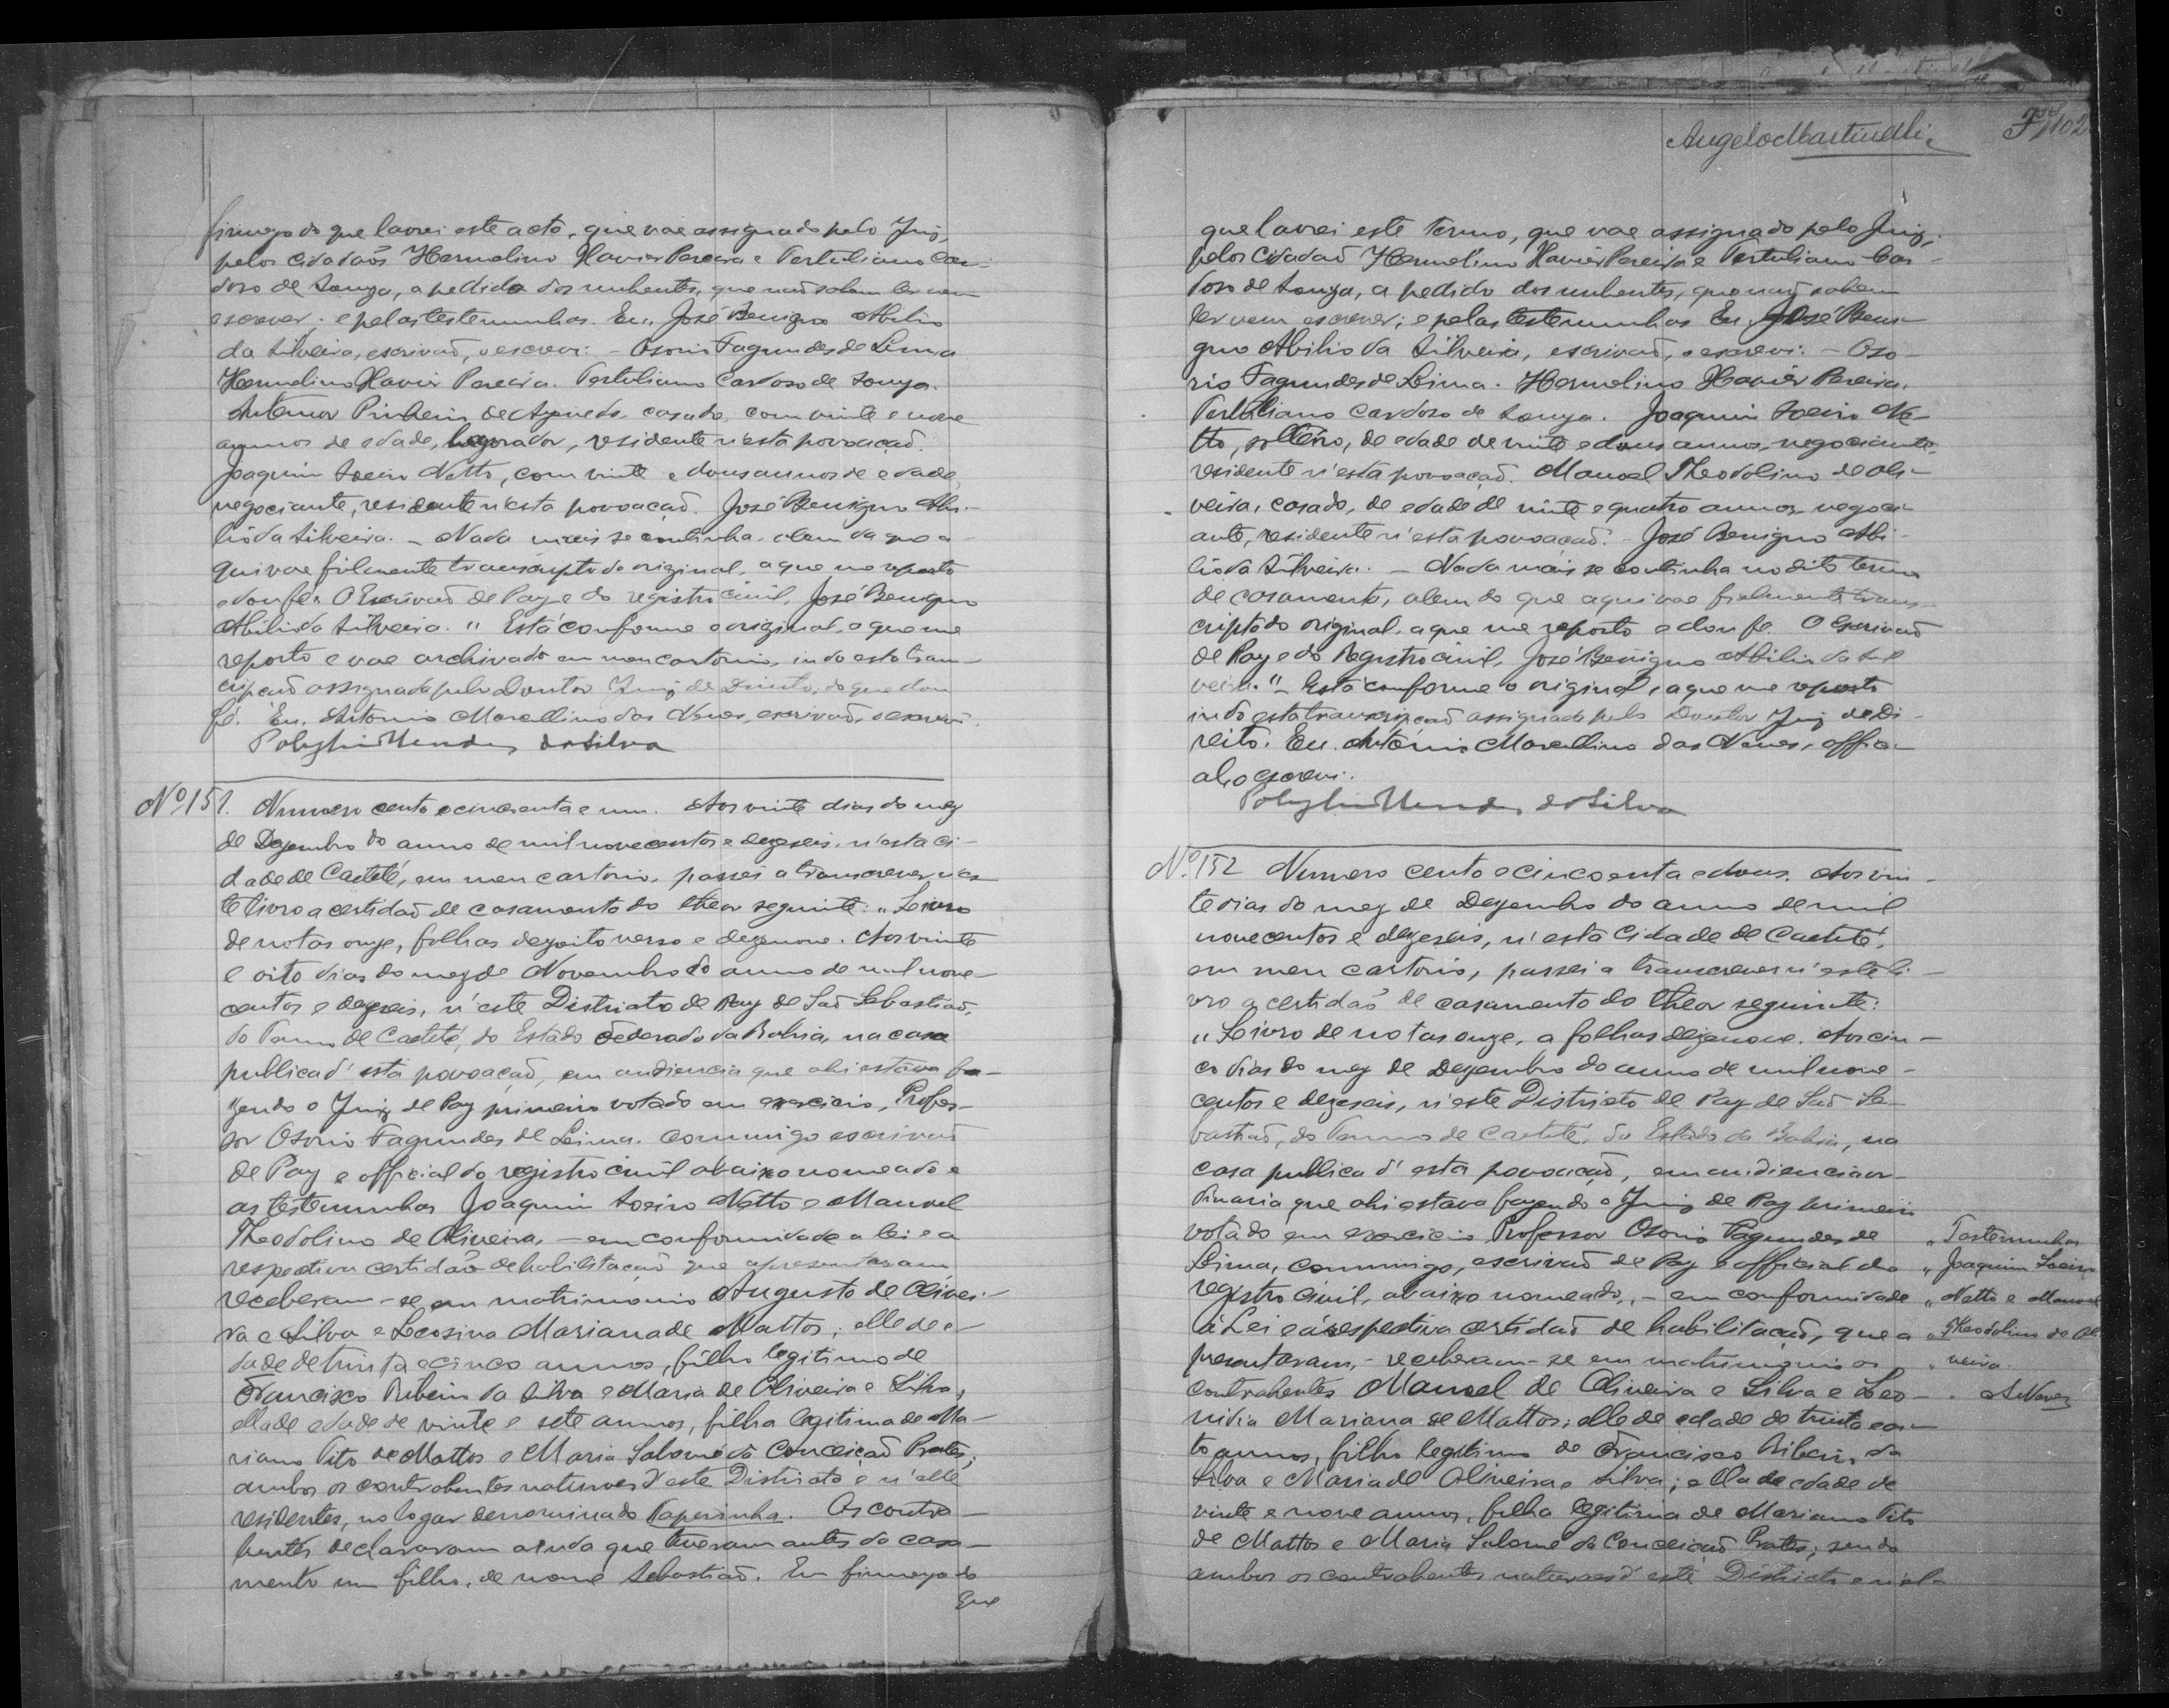 firmeza do que lavrei este acto, que vae assignado pelo Juiz,
pelos cidadãos Hermelino Xavier Pereira e Tertuliano Car-
doso de Souza, a pedido dos nubentes, que não sabem ler nem
escrever; e pelas testemunhas. Eu, José Benigno Abilio
da Silveira, escrivaõ, o escrevi: - Osorio Fagundes de Lima
Hermelino Xavier Pereira. Tertuliano Cardoso de Souza.
Antenor Pinheiro de Azevedo, casado, com vinte e nove
annos de edade, lavrador, residente n'esta povoaçaõ.
Joaquim Soeiro Netto, com vinte e dous annos de edade,
negociante, residente n'esta povoaçaõ. José Benigno Abi-
lio da Silveira. - Nada mais se continha, alem do que a-
qui vae fielmente transcripto do original, a que me reporto
e dou fé. O Escrivaõ de Paz e do registro civil, José Benigno
Abilio da Silveira. " Está conforme o original, a que me
reporto e vae archivado em meu cartorio, indo esta trans-
cripçaõ assignada pelo Doutor Juiz de Direito, do que dou
fé. Eu. Antonio Marcellino das Neves, escrivaõ, o escrevi.
Mendes da Silva
Nº 151. Numero cento e cincoenta e um. Aos vinte dias do mez
de Dezembro do anno de mil novecentos e dezeseis, n'esta ci-
dade de Caeteté, em meu cartorio, passei a transcrever nes-
te livro a certidaõ de casamento do theor seguinte: " Livro
de notas onze, folhas dezoito verso e dezenove. Aos vinte
e oito dias do mez de Novembro do anno de mil nove-
centos e dezeseis, n'este Districto de Paz de Saõ Sebastiaõ,
do Termo de Caeteté, do Estado Federado da Bahia, na casa
publica d'esta povoaçaõ, em audiencia que ahi estava fa-
zendo o Juiz de Paz primeiro votado em exercicio, Profes-
sor Osorio Fagundes de Lima, commigo escrivaõ
de Paz e official do registro civil abaixo nomeado e
as testemunhas Joaquim Soeiro Netto e Manoel
Theodolino de Oliveira, - em conformidade a lei e a
respectiva certidaõ de habilitaçaõ que apresentaram
receberam-se em matrimonio Augusto de Olivei-
ra e Silva e Leosina Mariana de Mattos; elle de e-
dade de trinta e cinco annos, filho legitimo de
Francisco Ribeiro da Silva e Maria de Oliveira e Silva,
ella de edade de vinte e sete annos, filha legitima de Ma-
riano Tito de Mattos e Maria Salomé da Conceiçaõ Prates;
ambos os contrahentes naturaes d'este Districto e n'elle
residentes, no logar denominado Taperinha. Os contra-
hentes declararam ainda que tiveram antes do casa-
mento um filho, de nome Sebastiaõ. Em firmeza do
que
Angelo Martinelli
102
que lavrei este termo, que vae assignado pelo Juiz,
pelos cidadaõ Hermelino Xavier Pereira e Tertuliano Car-
doso de Souza, a pedido dos nubentes, que naõ sabem
ler nem escrever; e pelas testemunhas Eu, José Beni-
gno Abilio da Silveira, escrivaõ, o escrevi: - Oso-
rio Fagundes de Lima. Hermelino Xavier Pereira.
Tertuliano Cardoso de Souza. Joaquim Soeiro Ne-
tto, solteiro, de edade de vinte e dous annos, negociante,
residente n'esta povoaçaõ. Manoel Theodolino de Oli-
veira, casado, de edade de vinte e quatro annos, negoci-
ante, residente n'esta povoaçaõ. - José Benigno Abi-
lio da Silveira. - Nada mais se continha no dito termo
de casamento, alem do que aqui vae fielmente trans-
cripto do original, a que me reporto e dou fe. O Escrivaõ
de Paz e do Registro civil, José Benigno Abilio da Sil
veira. " - Está conforme o original, a que me reporto
indo esta transcripçaõ assignada pelo Doutor Juiz de Di-
reito. Eu. Antonio Marcellino das Neves, offici-
al, o escrevi.
Mendes da Silva
Nº 152 Numero cento e cincoenta e dous. Aos vin-
te dias do mez de Dezembro do anno de mil
novecentos e dezeseis, n'esta Cidade de Caeteté,
em meu cartorio, passei a transcrever n'este li-
vro a certidaõ de casamento do theor seguinte:
"Livro de notas onze, a folhas dezenove. Aos cin-
co dias do mez de Dezembro do anno de mil nove-
centos e dezeseis, n'este Districto de Paz de Saõ Se-
bastiaõ, do Termo de Caeteté, do Estado da Bahia, na
casa publica d'esta povoaçaõ, em audiencia or-
dinaria que ahi estava fazendo o Juiz de Paz primeiro
votado em exercicio Professor Osorio Fagundes de
Lima, commigo, escrivaõ de Paz e official do
registro civil, abaixo nomeado, - em conformidade
á Lei e á respectiva certidaõ de habilitaçaõ, que a
presentaram, - receberam-se em matrimonio os
contrahentes Manoel de Oliveira e Silva e Leo-
nidia Mariana de Mattos; elle de edade de trinta e oi-
to annos, filho legitimo de Francisco Ribeiro da
Silva e Maria de Oliveira e Silva; ella de edade de
vinte e nove annos, filha legitima de Mariano Tito
de Mattos e Maria Salomé da Conceiçaõ Prates; sendo
ambos os contrahentes naturaes d'este Districto e n'el-
" Testemunhas
" Joaquim Soeiro
" Netto e Manoel
" Theodolino de Oli
" veira
A Neves